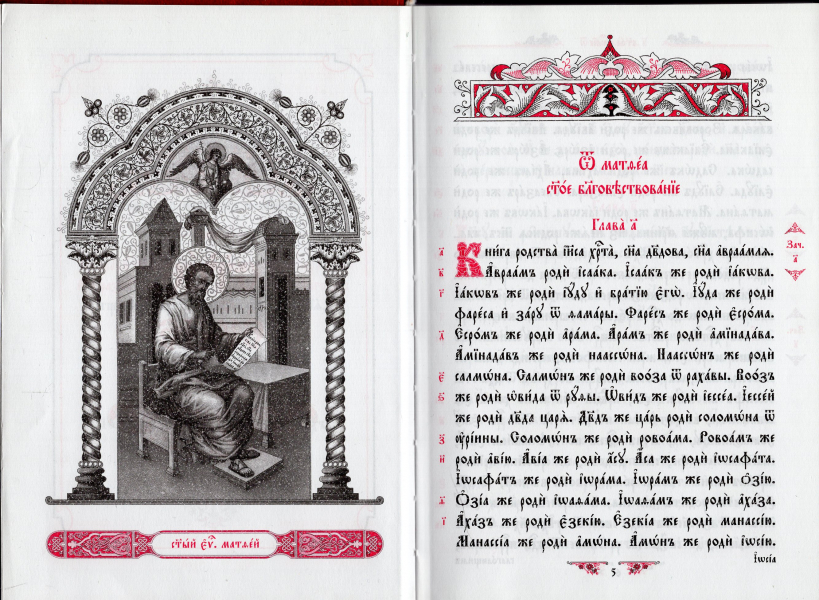 ст҃ый є҆ѵⷢ҇. матѳе́й
Ѿ матѳе́а
ст҃о́е бл҃говѣствова́нїе
Глава̀ а҃
Зач. а҃
а҃ Кни́га родства̀ і҆и҃са хрⷭ҇та̀, сн҃а дв҃дова, сн҃а а҆враа́млѧ.
в҃ А҆враа́мъ родѝ і҆саа́ка. І҆саа́къ же родѝ і҆а́кѡва.
г҃ І҆а́кѡвъ же родѝ і҆ꙋ́дꙋ и҆ бра́тїю є҆гѡ̀. І҆ꙋ́да же родѝ
фаре́са и҆ за́рꙋ ѿ ѳама́ры. Фаре́съ же родѝ є҆срѡ́ма.
д҃ Є҆срѡ́мъ же родѝ а҆ра́ма. А҆ра́мъ же родѝ а҆мїнада́ва.
А҆мїнада́въ же родѝ наассѡ́на. Наассѡ́нъ же родѝ
є҃ салмѡ́на. Салмѡ́нъ же родѝ воо́за ѿ раха́вы. Воо́зъ
ѕ҃ же родѝ ѡ҆ви́да ѿ рꙋ́ѳы. Ѡ҆ви́дъ же родѝ і҆ессе́а. І҆ессе́й
же родѝ дв҃да царѧ̀. Дв҃дъ же ца́рь родѝ соломѡ́на ѿ
з҃ ᲂу҆рі́ины. Соломѡ́нъ же родѝ ровоа́ма. Ровоа́мъ же
и҃ родѝ а҆ві́ю. А҆ві́а же родѝ а҆́сꙋ. А҆́са же родѝ і҆ѡсафа́та.
І҆ѡсафа́тъ же родѝ і҆ѡра́ма. І҆ѡра́мъ же родѝ ѻ҆зі́ю.
ѳ҃ Ѻ҆зі́а же родѝ і҆ѡаѳа́ма. І҆ѡаѳа́мъ же родѝ а҆ха́за.
і҃ А҆ха́зъ же родѝ є҆зекі́ю. Є҆зекі́а же родѝ манассі́ю.
Манассі́а же родѝ а҆мѡ́на. А҆мѡ́нъ же родѝ і҆ѡсі́ю.
І҆ѡсі́а
5